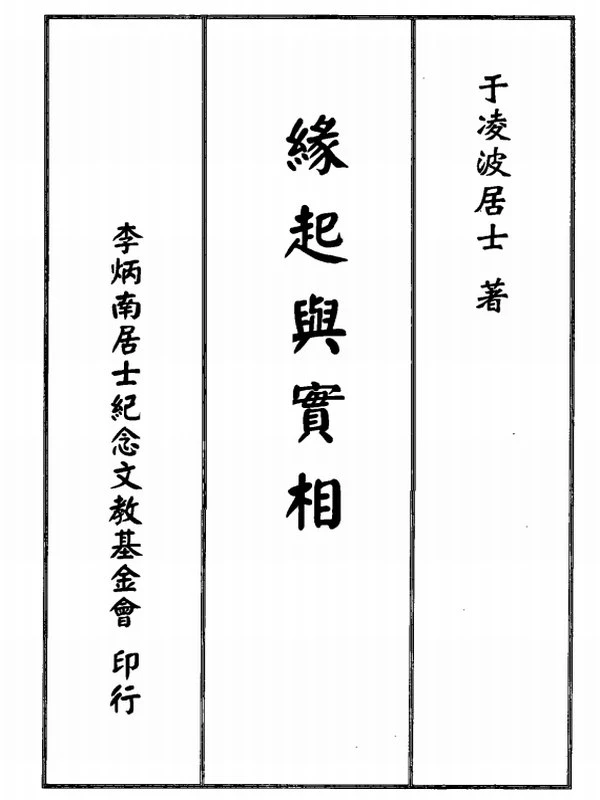 于凌波居士 著
緣起與實相
李炳南居士紀念文教基金會 印行